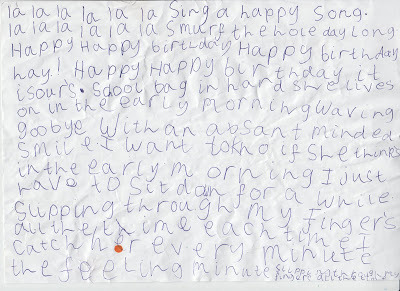 la la la la la la la Sing a happy Song.
la la la la la la la Smurf the hole day long
Happy Happy birtlday Happy birthday
hay! Happy Happy birthday it
isours. Scool bag in hard she lives
on in the early morning waving
goobye With an absant minded
Smile I want to kno if She thinks
in the early morning I just
have to Sit down for a while.
Slipping through my finger's
all the thime each tim et
catch her every minute
the feeling minute